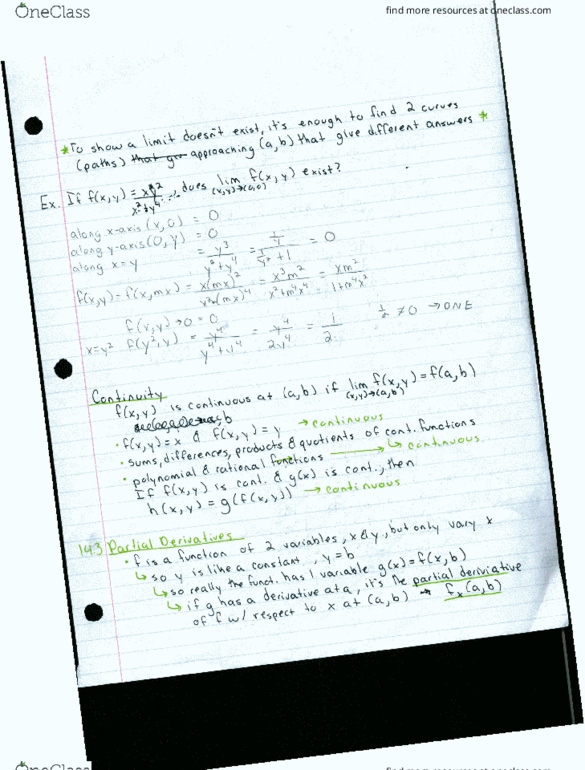 OneClass
find more resources at oneclass.com
*To show a limit doesn't exist, it's enough to find 2 curves
(paths) approaching (a,b) that give different answers *
Ex. If f(x,y) = xy²/x²+y⁴, does lim (x,y)→(0,0) f(x,y) exist?
along x-axis (x,0) = 0
along y-axis (0,y) = 0
along x=y = y³/y²+y⁴ = y/y²+1 = 0
f(x,y) = f(x,mx) = x(mx)²/x²+(mx)⁴ = x³m²/x²+m⁴x⁴ = xm²/1+m⁴x²
f(x,y)→0 = 0
x=y² f(y²,y) = y⁴/y⁴+y⁴ = y⁴/2y⁴ = 1/2 1/2 ≠ 0 → ONE
Continuity
f(x,y) is continuous at (a,b) if lim (x,y)→(a,b) f(x,y) = f(a,b)
• f(x,y)=x & f(x,y)=y → continuous
• sums, differences, products & quotients of cont. functions
• polynomial & rational functions → continuous
If f(x,y) is cont. & g(x) is cont., then
h(x,y) = g(f(x,y)) → continuous
14.3 Partial Derivatives
• f is a function of 2 variables, x & y, but only vary x
↳ so y is like a constant, y=b
↳ so really the funct. has 1 variable g(x)=f(x,b)
↳ if g has a derivative at a, it's the partial deriviative
of f w/ respect to x at (a,b) → fx(a,b)
OneClass
find more resources at oneclass.com